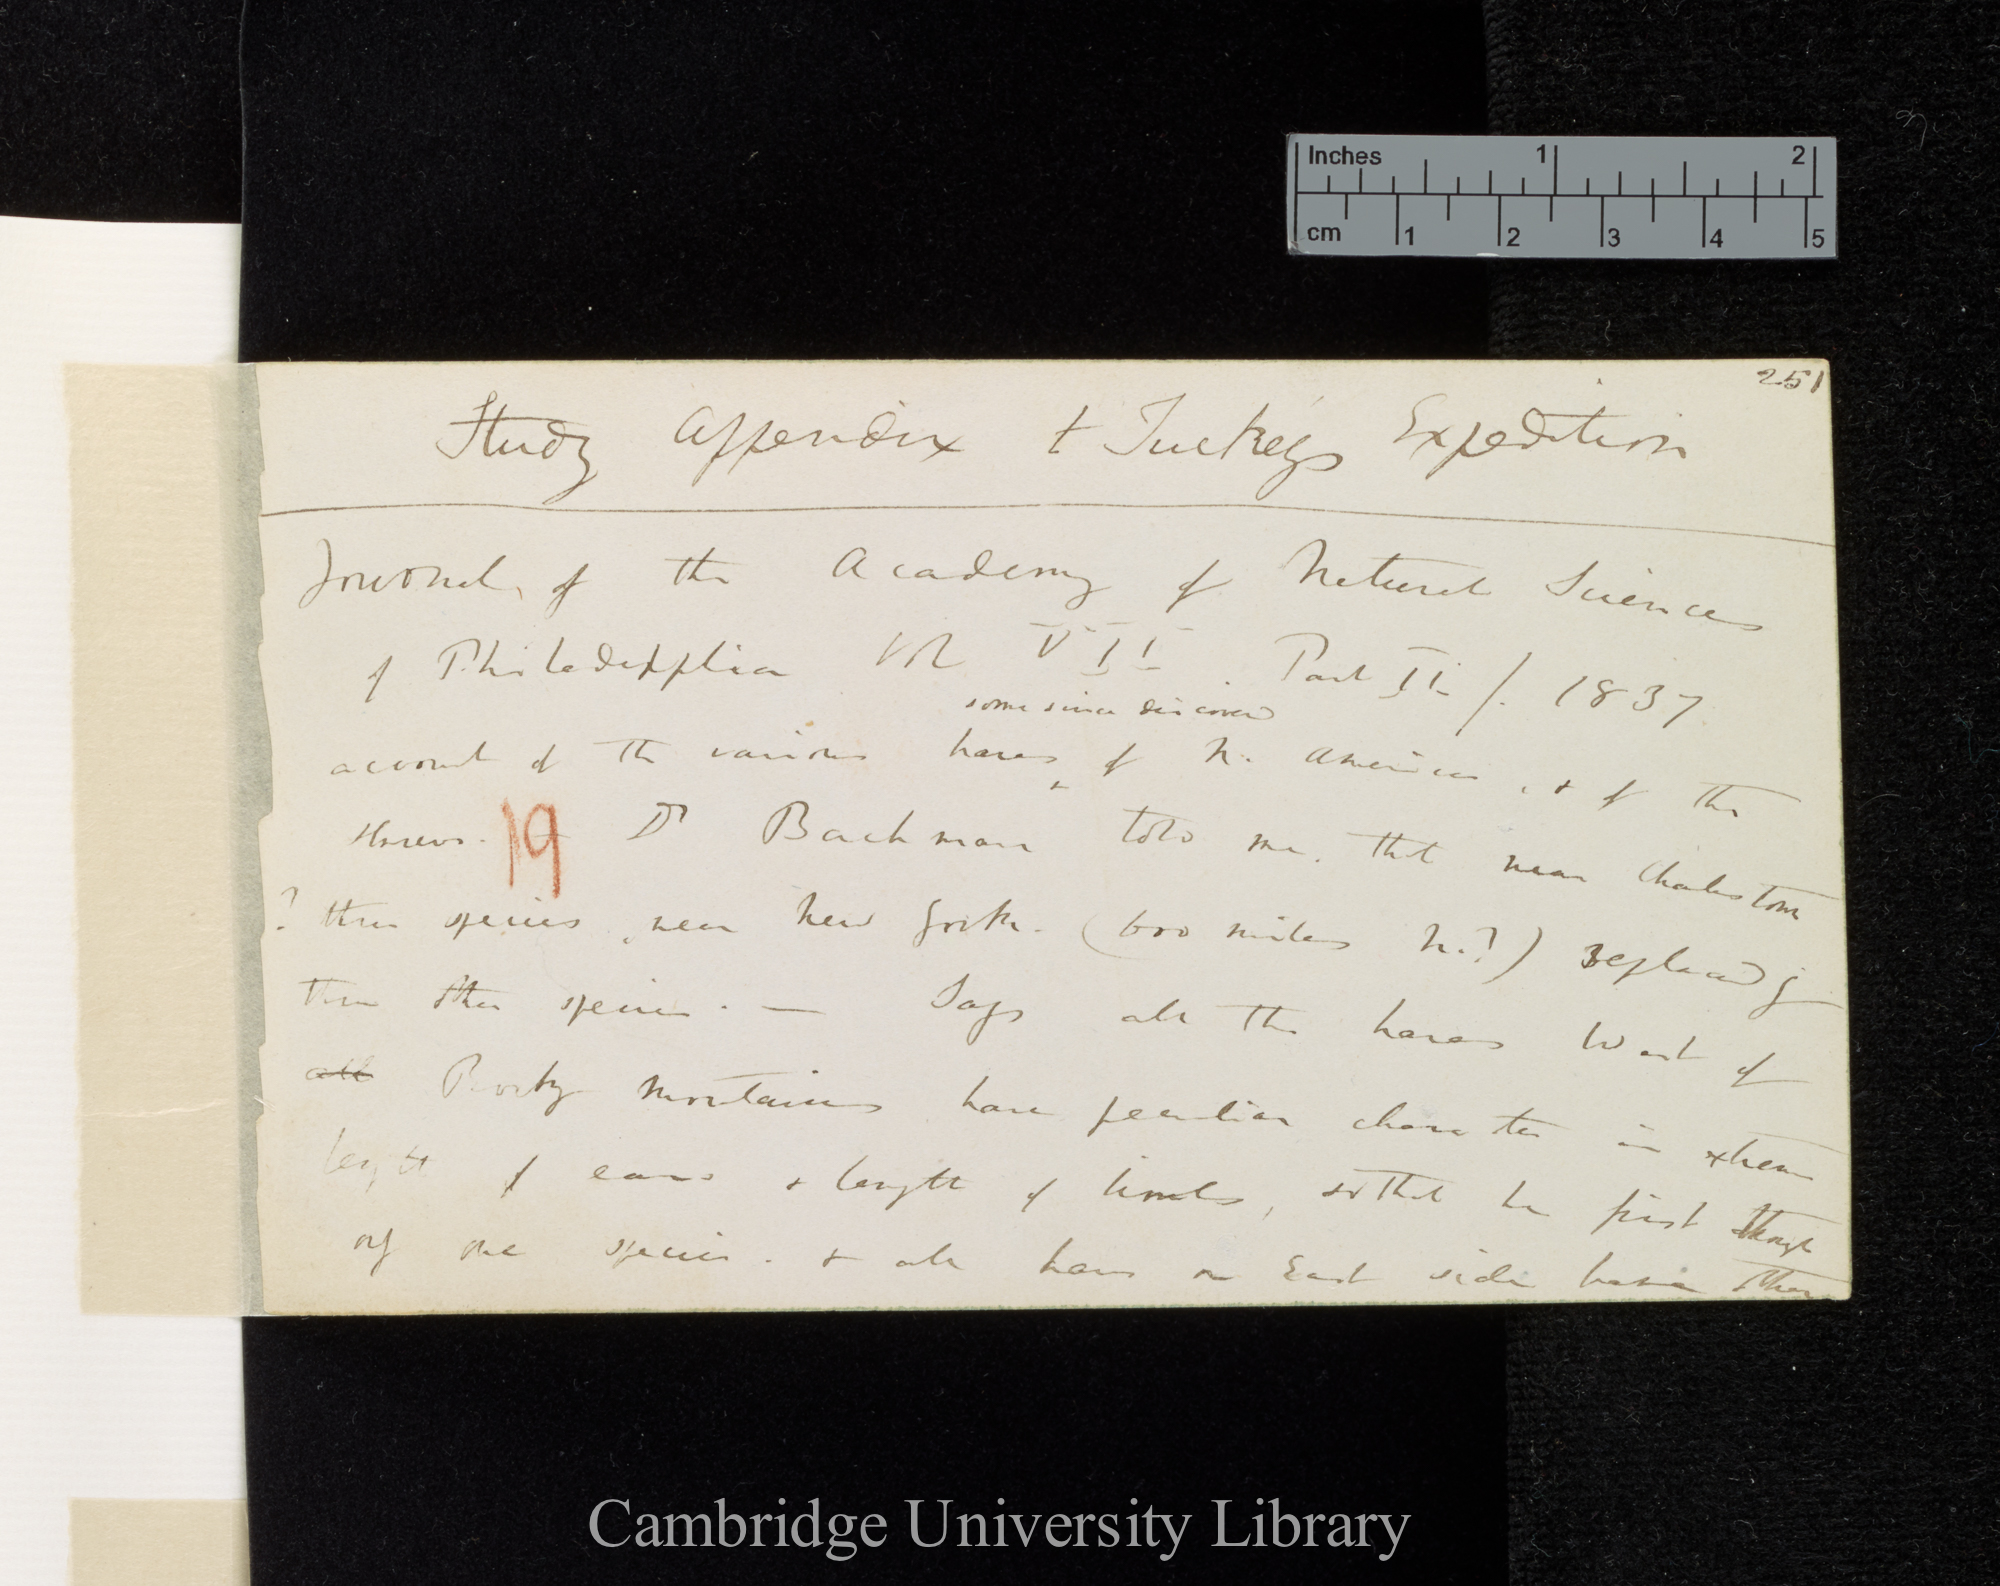 Inches 1 2
cm 1 2 3 4 5
251
Study Appendix to Tuckeys Expedition
Journal of the Academy of Natural Sciences
of Philadelphia Vol VII Part II /. 1837
some since discovered
account of the various hares ‸ of N. America, & of the
shrews. 19 Dr Bachman told me. that near Charlestown
? three species, near New York. (600 miles N.?) replaced by
three other species. — Says all the hares West of
all Rocky Mountains have peculiar character in extreme
length of ears & length of limbs, so that he first thought
only one species. & all hares on East side have
Cambridge University Library